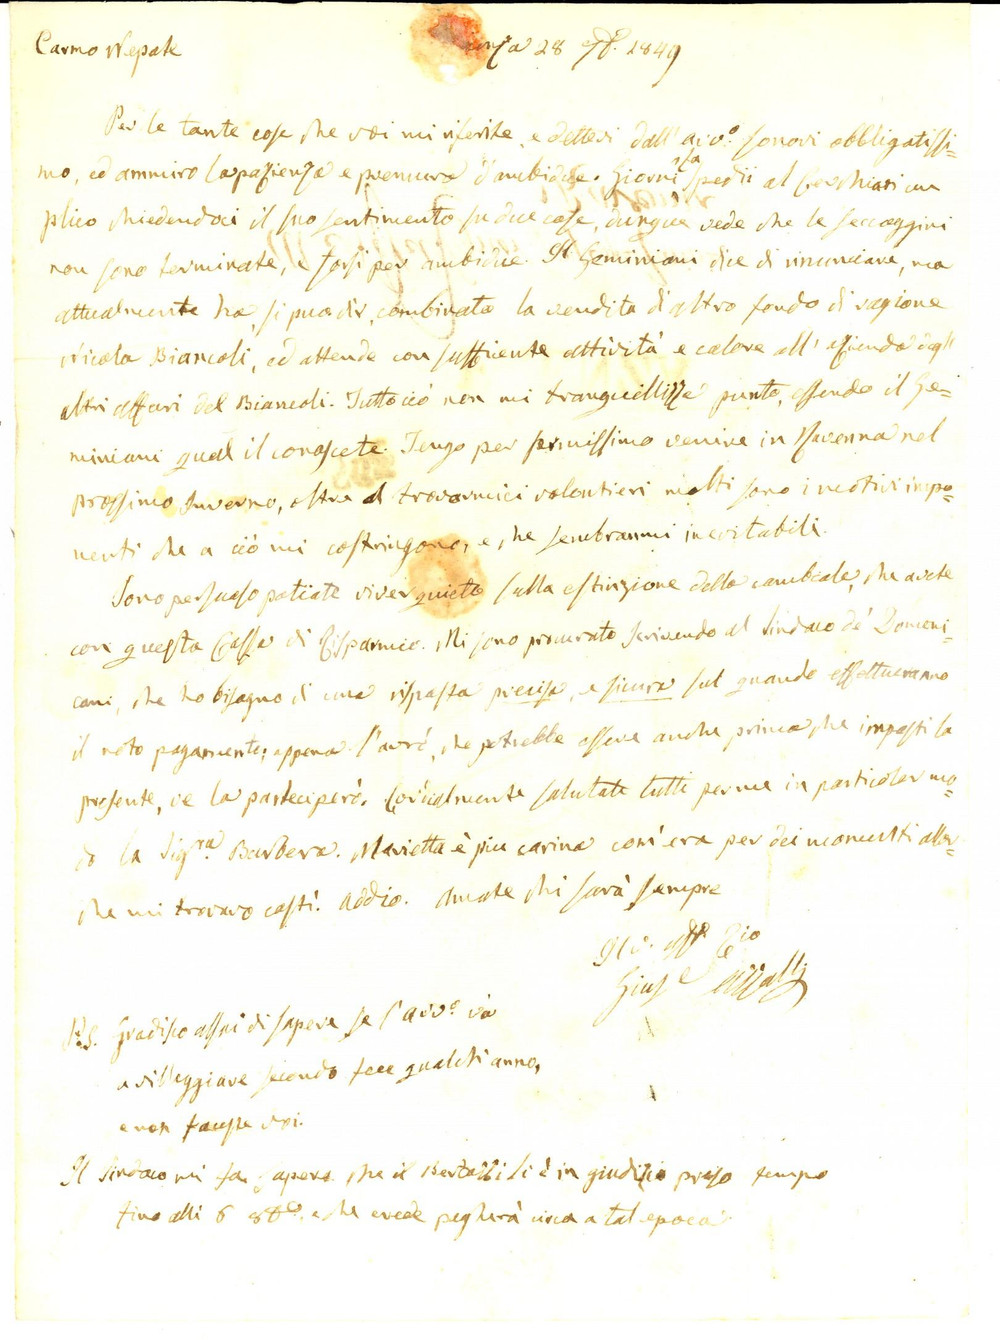 Carmo Nepote 28 1849
Per le tante cose che voi mi riferite, e dettevi dall' avv.º sonovi obbligatissi=
mo, ed ammiro la pazienza e premura d'ambidue. Giorni fa spedii al un
plico chiedendoci il suo sentimento su due cose, dunque vede che le seccaggini
non sono terminate, e forsi per ambidue. Il Geminiani dice di rinunciare, ma
attualmente ha, si può dir, combinato la vendita di altro fondo di ragione
Nicola Biancoli, ed attende con sufficiente attività e calore all' azienda degli
altri affari del Biancoli. Tutto ciò non mi tranquillizza punto, essendo il Ge=
miniani qual il conoscete. Tengo per fermissimo venire in Ravenna nel
prossimo Inverno, oltre al trovarmici volontieri molti sono i motivi impo=
nenti che a ciò mi costringono, e che sembranmi inevitabili.
Sono persuaso potiate viver quieto sulla estinzione della cambiale, che avete
con questa Cassa di Risparmio. Mi sono procurato scrivendo al Sindaco de' Domeni=
cani, che ho bisogno di una risposta precisa, e sicura sul quando effettueranno
il noto pagamento; appena l'avrò, che potrebbe essere anche prima che imposti la
presente, ve la parteciperò. Cordialmente salutate tutti per me in particolar mo=
do la Sig.ra Barbera. Marietta è più carina com'era per dei momenti allor=
che mi trovavo costì. Addio. Amate chi sarà sempre
Il v. aff. Zio
Gius.e
P.S. Gradisco assai di sapere se l'avv.º và
a villeggiare secondo fece qualch'anno,
e non faceste voi.
Il Sindaco mi fa sapere che il si è in giudizio preso tempo
fino alli 6 8bre, e che crede pagherà circa a tal epoca.